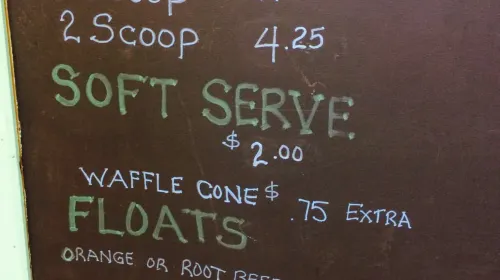 2 SCOOP 4.25
SOFT SERVE
$ 2.00
WAFFLE CONE $ .75 EXTRA
FLOATS
ORANGE OR ROOT